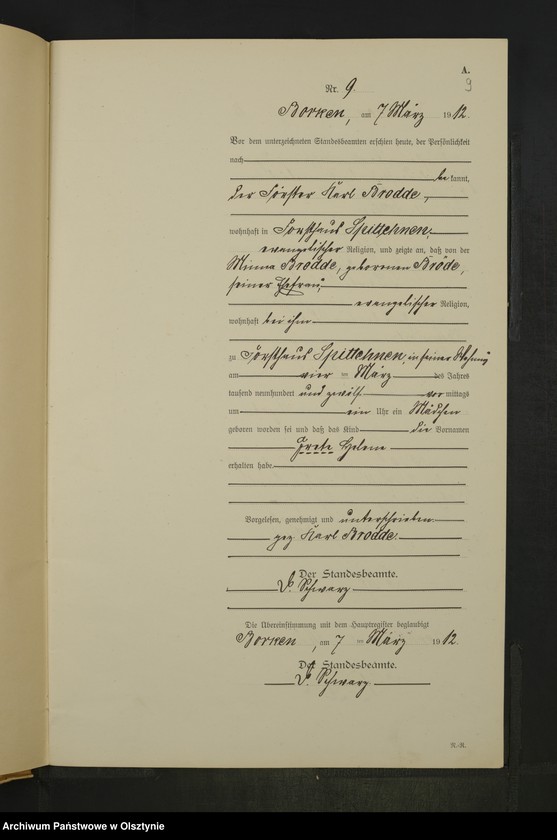 A.
9
Nr. 9.
Borken, am 7 März 1912.
Vor dem unterzeichneten Standesbeamten erschien heute, der Persönlichkeit
nach
be kannt,
der Förster Karl Brodde,
wohnhaft in Forsthaus Spittehnen,
evangelischer Religion, und zeigte an, daß von der
Minna Brodde, geborenen Bröde,
seiner Ehefrau,
evangelischer Religion,
wohnhaft bei ihm
zu Forsthaus Spittehnen, in seiner Wohnung
am vier ten März des Jahres
tausend neunhundert und zwölf vor mittags
um ein Uhr ein Mädchen
geboren worden sei und daß das Kind die Vornamen
Grete Helene
erhalten habe.
Vorgelesen, genehmigt und unterschrieben
gez. Karl Brodde.
Der Standesbeamte.
Schwarz
Die Übereinstimmung mit dem Hauptregister beglaubigt
Borken, am 7 ten März 1912.
Der Standesbeamte.
Schwarz
N.-R.
Archiwum Państwowe w Olsztynie